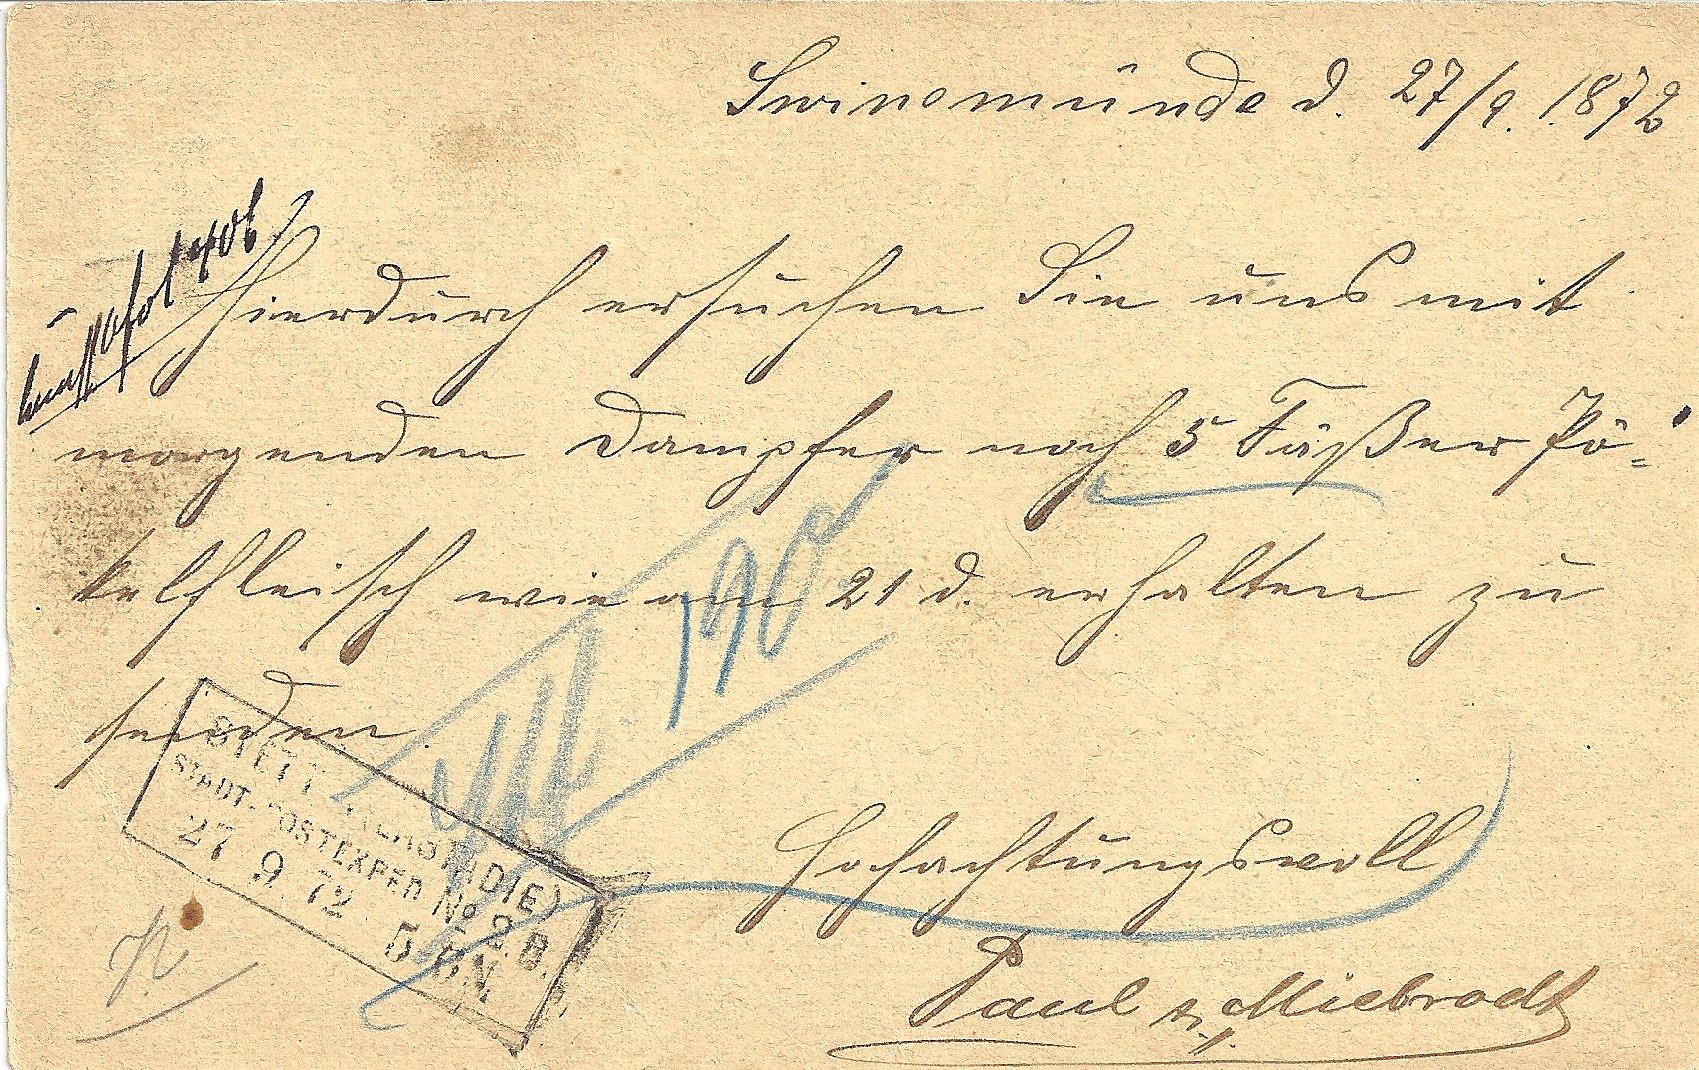 Swinemünde d. 27/9. 1872
Hierdurch ersuchen Sie uns mit
morgenden Dampfer noch 5 Fäßer Pö=
kelfleisch wie am 21 d. erhalten zu
senden.
Hochachtungsvoll
Paul & Miebrodt
STETTIN (LASTADIE)
STADT-POSTEXPED No 2.B.
27 9 72 5-6N.